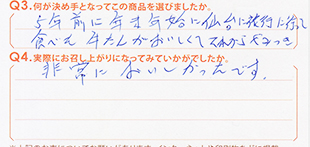 Q3.何が決め手となってこの商品を選びましたか。
5年前に年末年始に仙台に旅行に行って
食べた牛たんがおいしくてそれからやみつき
Q4.実際にお召し上がりになってみていかがでしたか。
非常においしかったです。